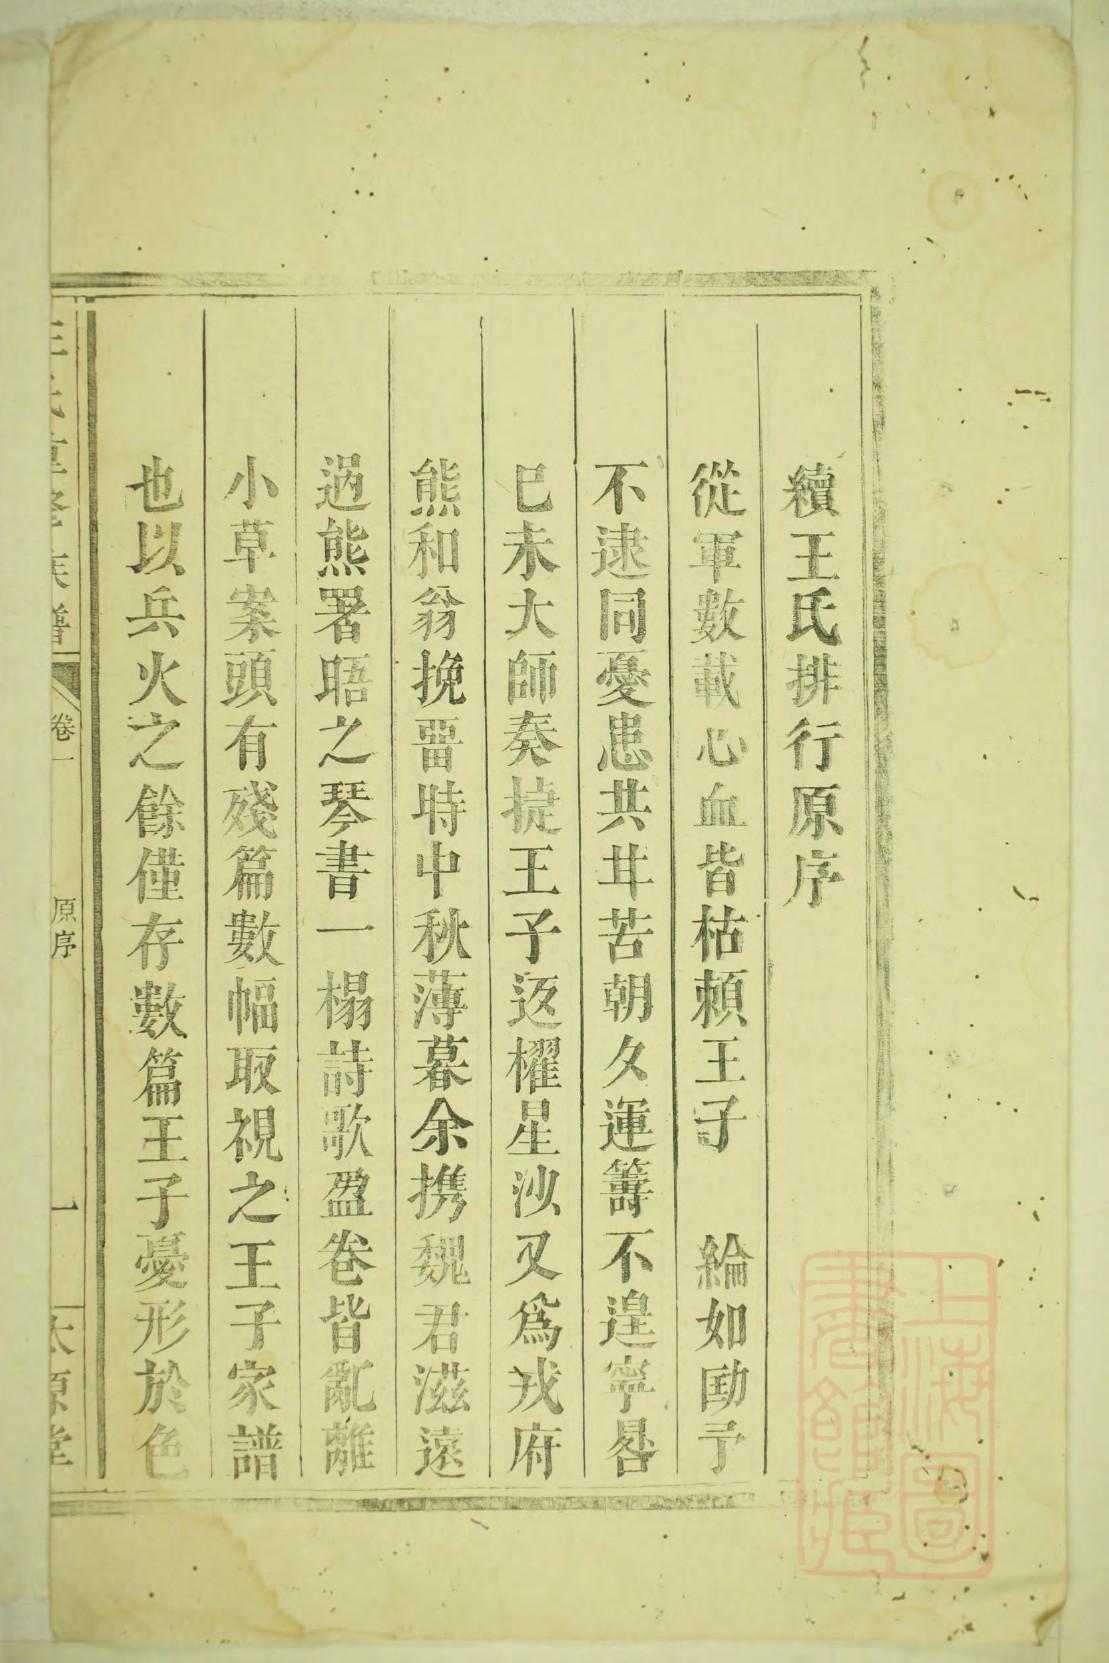 續王氏排行原序
從軍數載心血皆枯賴王子 綸如勷予
不逮同憂患共甘苦朝夕運籌不遑寧晷
己未大師奏捷王子返櫂星沙又為戎府
熊和翁挽畱時中秋薄暮余携魏君滋遠
過熊署晤之琴書一榻詩歌盈卷皆亂離
小草案頭有殘篇數幅取視之王子家譜
也以兵火之餘僅存數篇王子憂形於色
王氏草 族譜
卷一
原序
一
太原堂
上海圖書館藏